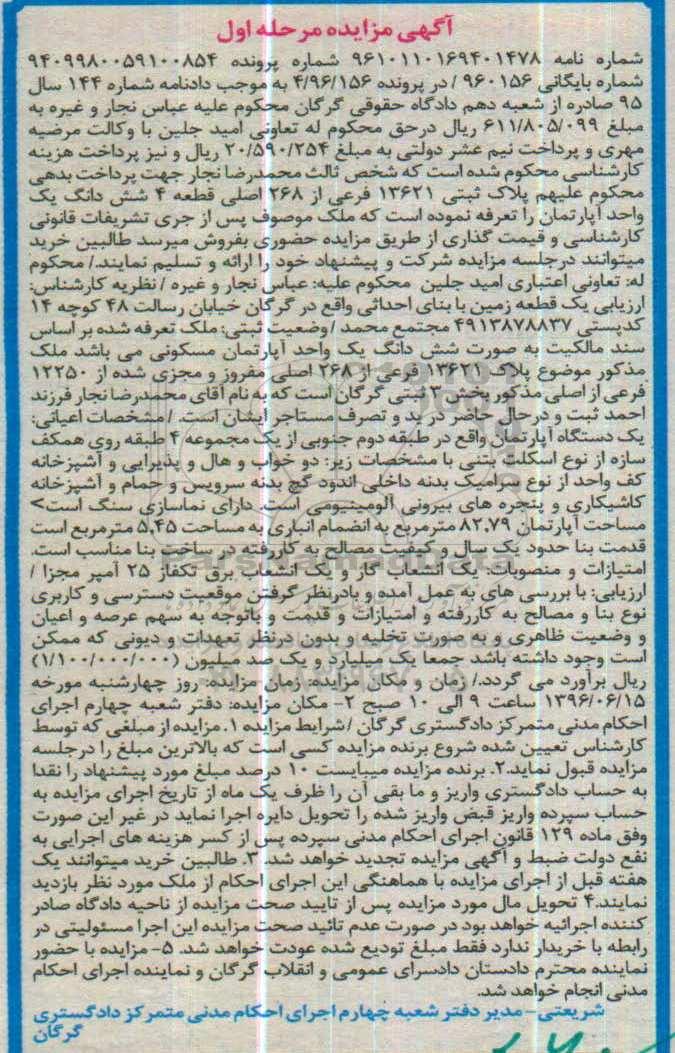 آگهی مزایده مرحله اول
شماره نامه ۹۶۱۰۱۱۰۱۶۹۴۰۱۴۷۸ شماره پرونده ۹۴۰۹۹۸۰۰۵۹۱۰۰۸۵۴
شماره بایگانی ۹۶۰۱۵۶ / در پرونده ۴/۹۶/۱۵۶ به موجب دادنامه شماره ۱۴۴ سال
۹۵ صادره از شعبه دهم دادگاه حقوقی گرگان محکوم علیه عباس نجار و غیره به
مبلغ ۶۱۱/۸۰۵/۰۹۹ ریال درحق محکوم له تعاونی امید جلین با وکالت مرضیه
مهری و پرداخت نیم عشر دولتی به مبلغ ۲۰/۵۹۰/۲۵۴ ریال و نیز پرداخت هزینه
کارشناسی محکوم شده است که شخص ثالث محمدرضا نجار جهت پرداخت بدهی
محکوم علیهم پلاک ثبتی ۱۳۶۲۱ فرعی از ۲۶۸ اصلی قطعه ۴ شش دانگ یک
واحد آپارتمان را تعرفه نموده است که ملک موصوف پس از جری تشریفات قانونی
کارشناسی و قیمت گذاری از طریق مزایده حضوری بفروش میرسد طالبین خرید
میتوانند درجلسه مزایده شرکت و پیشنهاد خود را ارائه و تسلیم نمایند./ محکوم
له: تعاونی اعتباری امید جلین محکوم علیه: عباس نجار و غیره / نظریه کارشناس:
ارزیابی یک قطعه زمین با بنای احداثی واقع در گرگان خیابان رسالت ۴۸ کوچه ۱۴
کدپستی ۴۹۱۳۸۷۸۸۳۷ مجتمع محمد / وضعیت ثبتی: ملک تعرفه شده بر اساس
سند مالکیت به صورت شش دانگ یک واحد آپارتمان مسکونی می باشد ملک
مذکور موضوع پلاک ۱۳۶۲۱ فرعی از ۲۶۸ اصلی مفروز و مجزی شده از ۱۲۲۵۰
فرعی از اصلی مذکور بخش ۳ ثبتی گرگان است که به نام آقای محمدرضا نجار فرزند
احمد ثبت و درحال حاضر در ید و تصرف مستاجر ایشان است. / مشخصات اعیانی:
یک دستگاه آپارتمان واقع در طبقه دوم جنوبی از یک مجموعه ۴ طبقه روی همکف
سازه از نوع اسکلت بتنی با مشخصات زیر: دو خواب و هال و پذیرایی و آشپزخانه
کف واحد از نوع سرامیک بدنه داخلی اندود گچ بدنه سرویس و حمام و آشپزخانه
کاشیکاری و پنجره های بیرونی آلومینیومی است. دارای نماسازی سنگ است>
مساحت آپارتمان ۸۲.۷۹ مترمربع به انضمام انباری به مساحت ۵.۴۵ مترمربع است
قدمت بنا حدود یک سال و کیفیت مصالح به کاررفته در ساخت بنا مناسب است.
امتیازات و منصوبات: یک انشعاب گاز و یک انشعاب برق تکفاز ۲۵ آمپر مجزا /
ارزیابی: با بررسی های به عمل آمده و بادرنظر گرفتن موقعیت دسترسی و کاربری
نوع بنا و مصالح به کاررفته و امتیازات و قدمت و باتوجه به سهم عرصه و اعیان
و وضعیت ظاهری و به صورت تخلیه و بدون درنظر تعهدات و دیونی که ممکن
است وجود داشته باشد جمعا یک میلیارد و یک صد میلیون (۱/۱۰۰/۰۰۰/۰۰۰)
ریال برآورد می گردد./ زمان و مکان مزایده: زمان مزایده: روز چهارشنبه مورخه
۱۳۹۶/۰۶/۱۵ ساعت ۹ الی ۱۰ صبح ۲- مکان مزایده: دفتر شعبه چهارم اجرای
احکام مدنی متمرکز دادگستری گرگان / شرایط مزایده ۱. مزایده از مبلغی که توسط
کارشناس تعیین شده شروع برنده مزایده کسی است که بالاترین مبلغ را درجلسه
مزایده قبول نماید.۲. برنده مزایده میبایست ۱۰ درصد مبلغ مورد پیشنهاد را نقدا
به حساب دادگستری واریز و ما بقی آن را ظرف یک ماه از تاریخ اجرای مزایده به
حساب سپرده واریز قبض واریز شده را تحویل دایره اجرا نماید در غیر این صورت
وفق ماده ۱۲۹ قانون اجرای احکام مدنی سپرده پس از کسر هزینه های اجرایی به
نفع دولت ضبط و آگهی مزایده تجدید خواهد شد. ۳. طالبین خرید میتوانند یک
هفته قبل از اجرای مزایده با هماهنگی این اجرای احکام از ملک مورد نظر بازدید
نمایند.۴ تحویل مال مورد مزایده پس از تایید صحت مزایده از ناحیه دادگاه صادر
کننده اجرائیه خواهد بود در صورت عدم تائید صحت مزایده این اجرا مسئولیتی در
رابطه با خریدار ندارد فقط مبلغ تودیع شده عودت خواهد شد. ۵- مزایده با حضور
نماینده محترم دادستان دادسرای عمومی و انقلاب گرگان و نماینده اجرای احکام
مدنی انجام خواهد شد.
شریعتی - مدیر دفتر شعبه چهارم اجرای احکام مدنی متمرکز دادگستری
گرگان